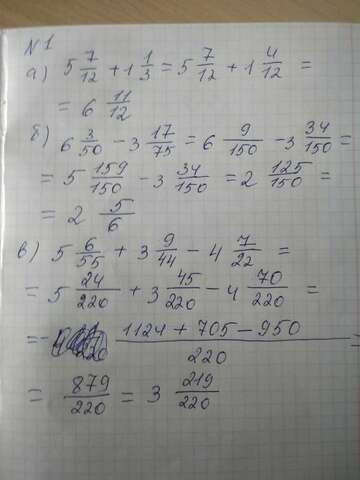 №1
а) 5 7/12 + 1 1/3 = 5 7/12 + 1 4/12 =
= 6 11/12
б) 6 3/50 - 3 17/75 = 6 9/150 - 3 34/150 =
= 5 159/150 - 3 34/150 = 2 125/150 =
= 2 5/6
в) 5 6/55 + 3 9/44 - 4 7/22 =
= 5 24/220 + 3 45/220 - 4 70/220 =
= (1124 + 705 - 950)/220 =
= 879/220 = 3 219/220